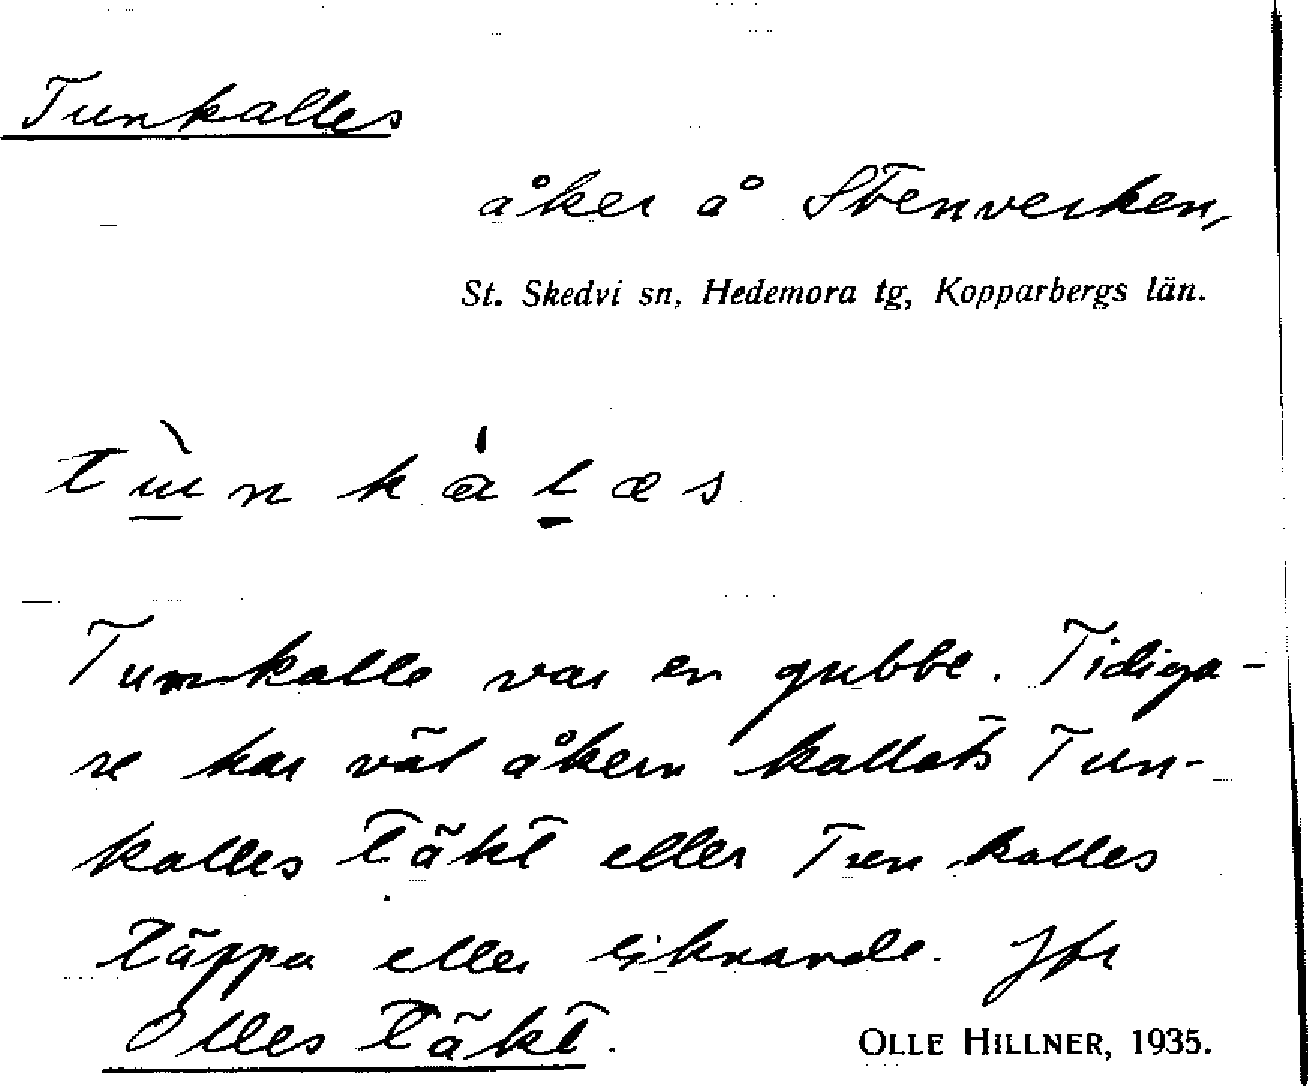 Tunkalles
åker å Stenverken,
St. Skedvi sn, Hedemora tg, Kopparbergs län.
tùnkálæs
Tunkalle var en gubbe. Tidiga-
re har väl åkern kallats Tun-
kalles täkt eller Tunkalles
täppa eller liknande. Jfr
Olles täkt.
OLLE HILLNER, 1935.